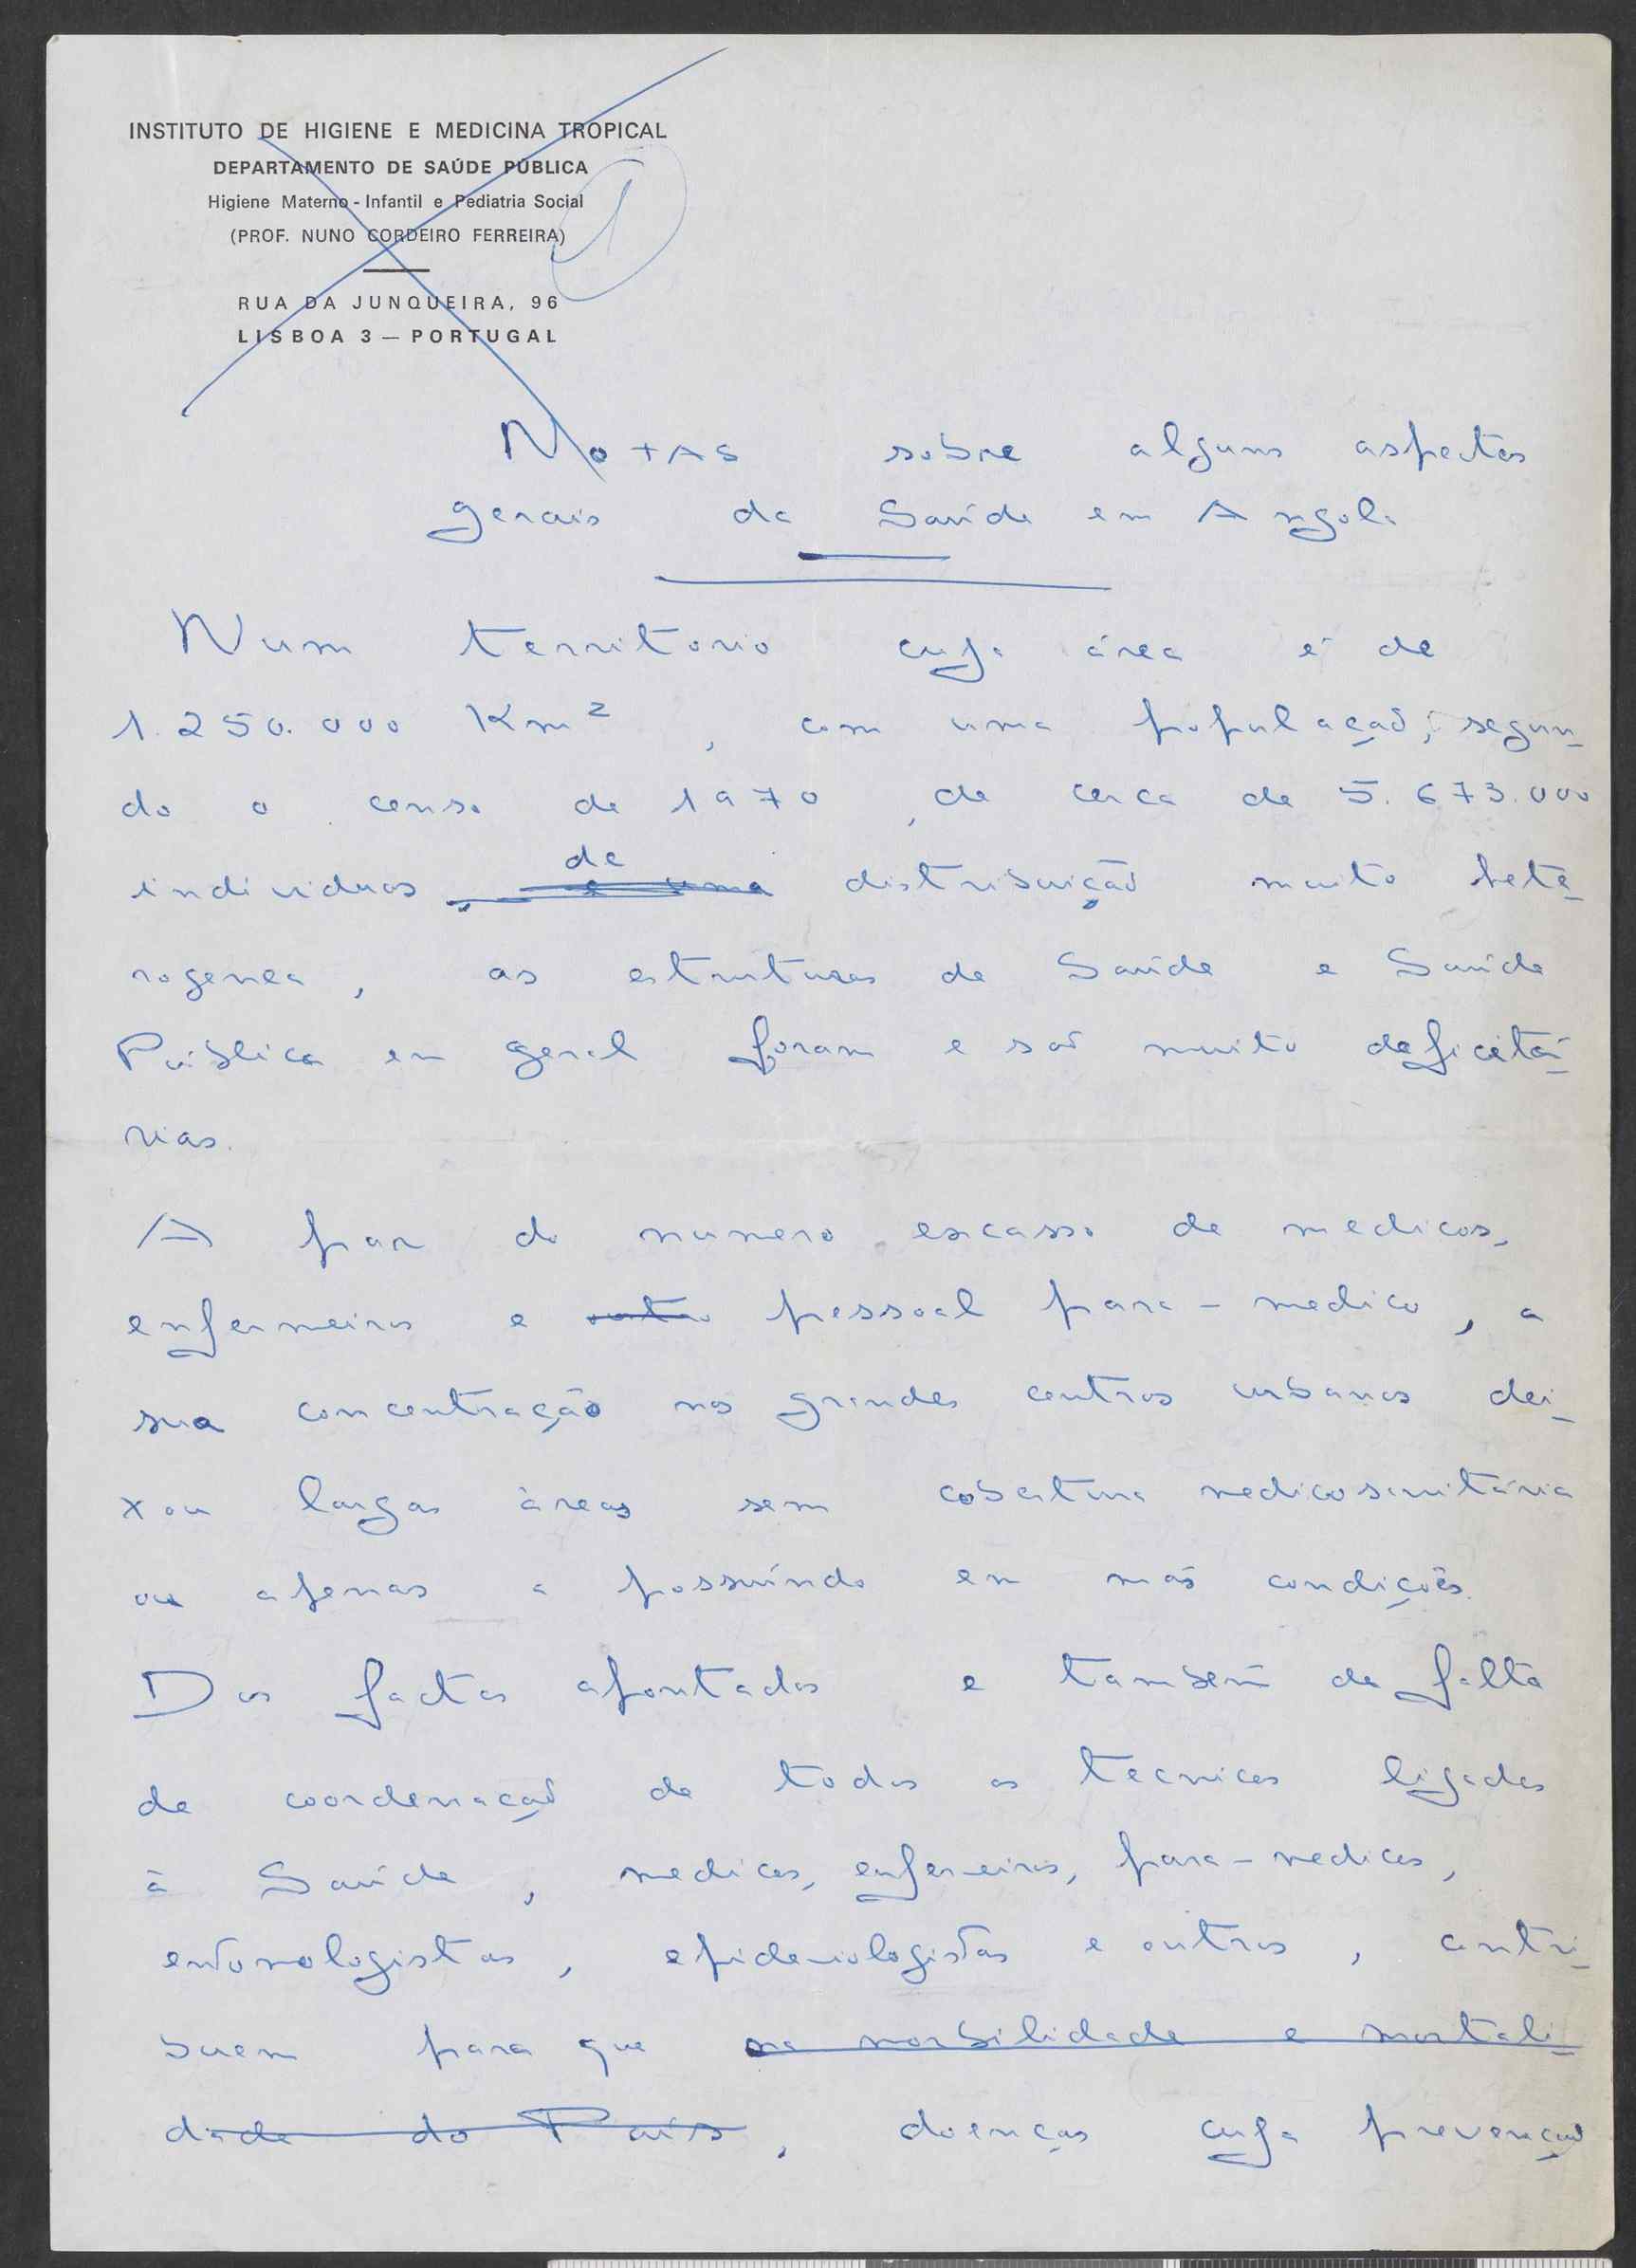 INSTITUTO DE HIGIENE E MEDICINA TROPICAL
DEPARTAMENTO DE SAÚDE PÚBLICA
Higiene Materno - Infantil e Pediatria Social
(PROF. NUNO CORDEIRO FERREIRA)
1
RUA DA JUNQUEIRA, 96
LISBOA 3 — PORTUGAL
Notas sobre alguns aspectos
gerais da Saúde em Angola
Num territorio cuja área é de
1.250.000 Km², com uma população, segun-
do o censo de 1970, de cerca de 5.673.000
de
individuos, e uma distribuição muito hete-
rogenea, as estruturas de Saúde e Saúde
Pública em geral foram e são muito deficitá-
rias.
A par do numero escasso de medicos,
enfermeiros e outro pessoal para-medico, a
sua concentração nos grandes centros urbanos dei-
xou largas àreas sem cobertura medicosanitária
ou apenas a possuíndo em más condições.
Dos factos apontados e também da falta
de coordenação de todos os tecnicos ligados
à Saúde, medicos, enfermeiros, para-medicos,
entomologistas, epidemiologistas e outros, contri-
buem para que na morbilidade e mortali-
dade do País, doenças cuja prevenção